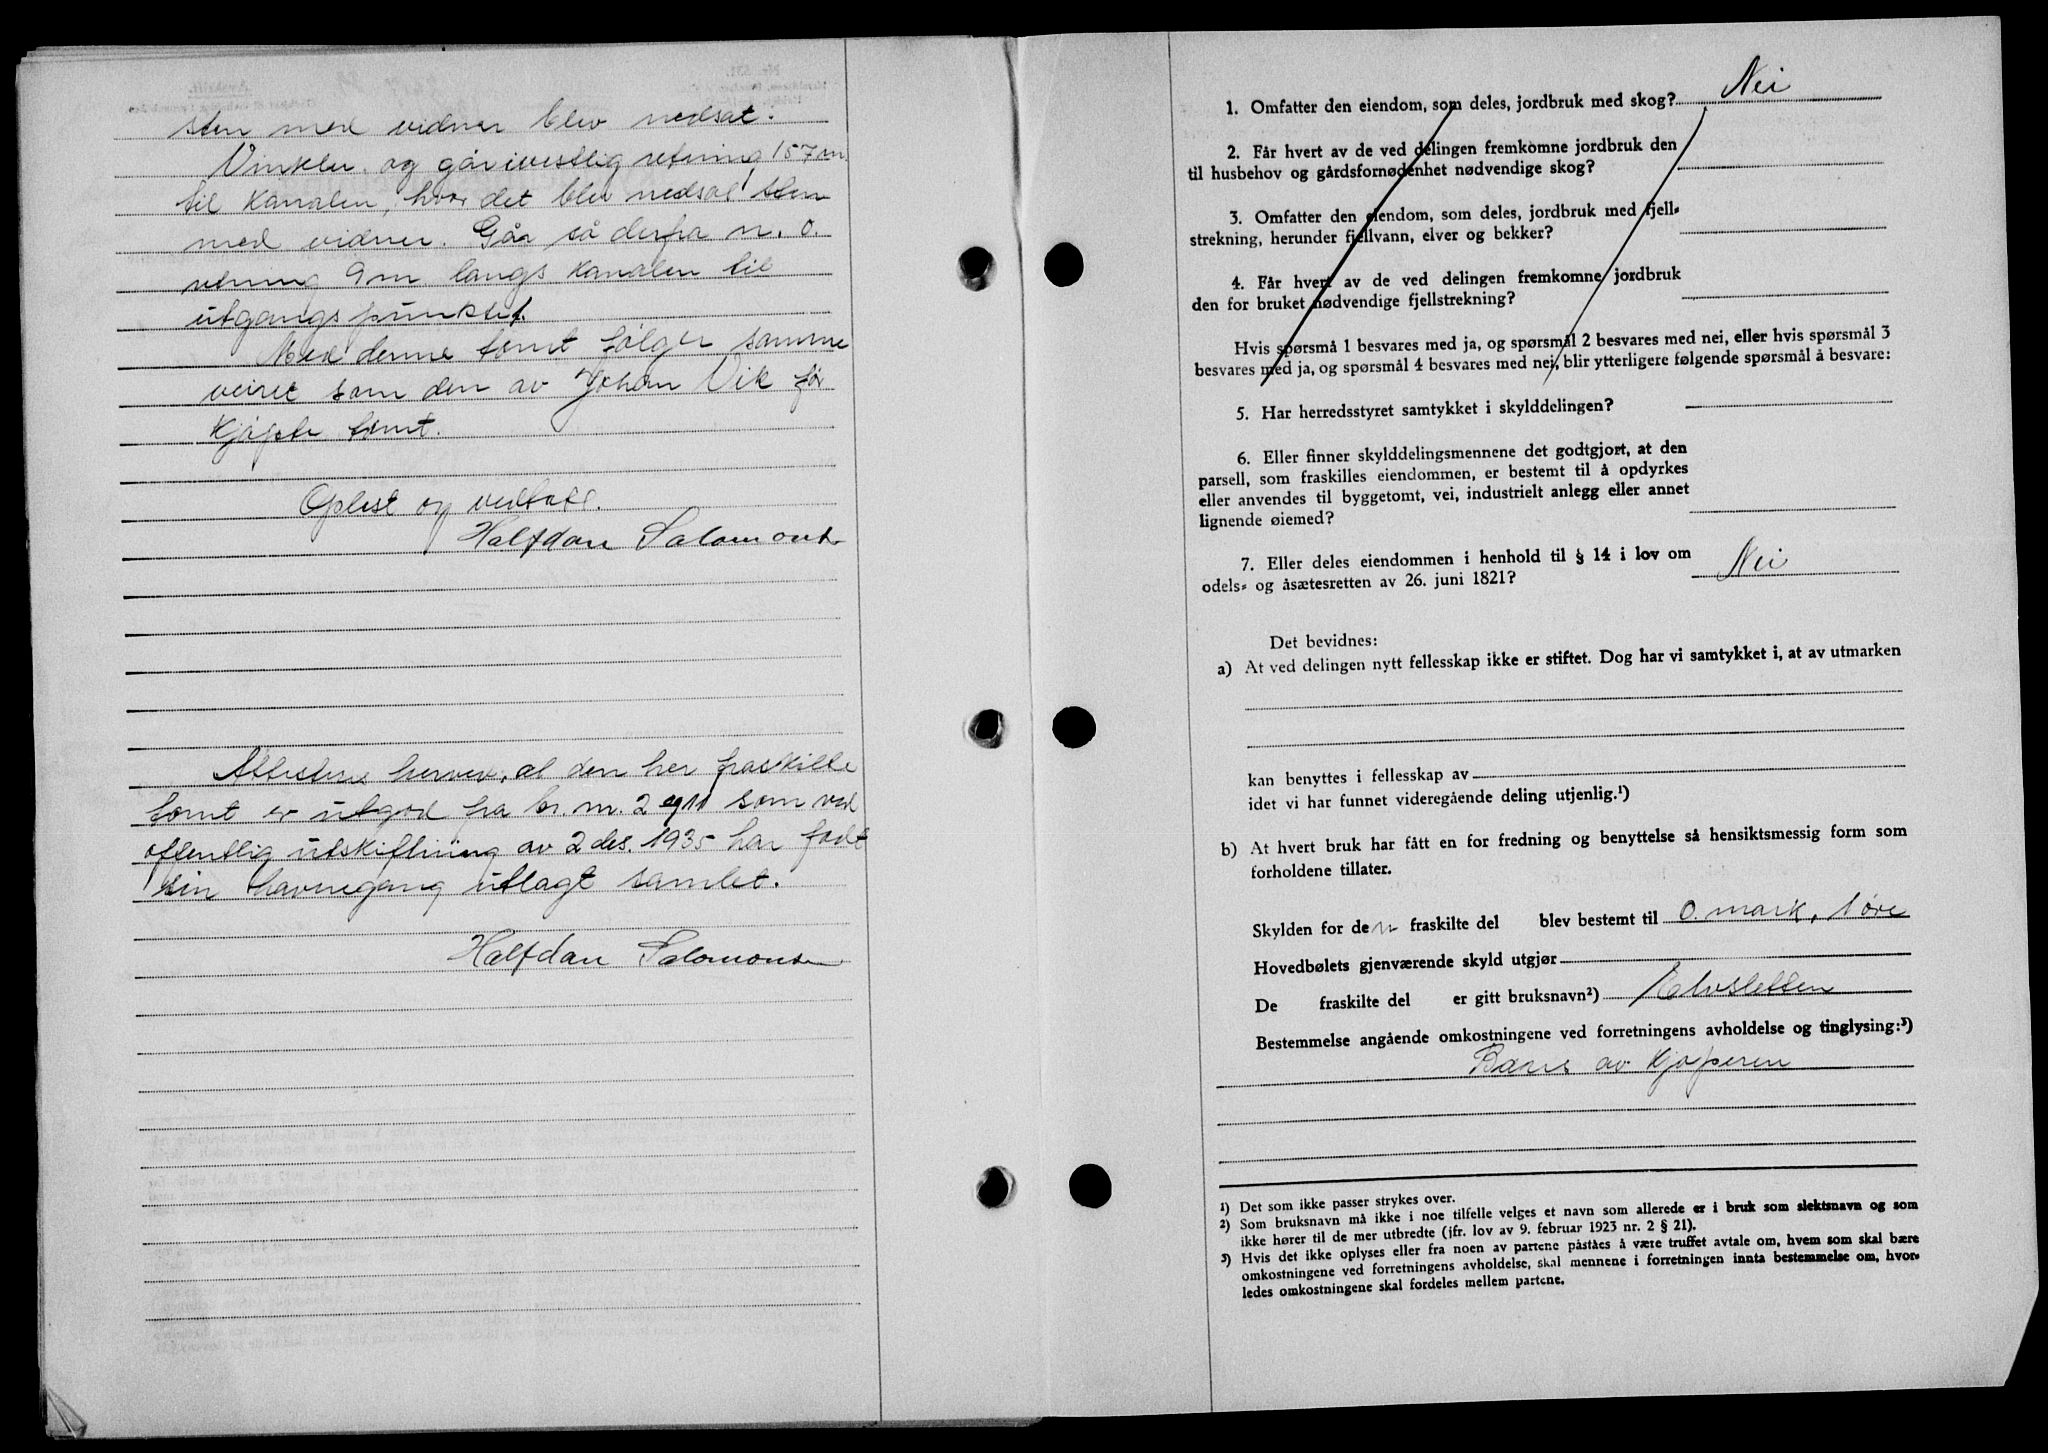 sten med vidner blev nedsat.
Vinkler og går i vestlig retning 157 m.
til Kanalen, hvor det blev nedsat sten
med vidner. Går så derfra n. ø.
retning 9 m langs Kanalen til
utgangspunktet.
Med denne tomt følger samme
veiret som den av Johan Vik før
Kjøpte tomt.
Oplest og vedtatt.
Halfdan Salomonsen
Attesteres herved, at den her fraskilte
tomt er utgåd fra br. nr. 2 og 11 som ved
offentlig utskiftning av 2 des. 1935 har fådt
sin havnegang utlagt samlet.
Halfdan Salomonsen
1. Omfatter den eiendom, som deles, jordbruk med skog? Nei
2. Får hvert av de ved delingen fremkomne jordbruk den
til husbehov og gårdsfornødenhet nødvendige skog?
3. Omfatter den eiendom, som deles, jordbruk med fjell-
strekning, herunder fjellvann, elver og bekker?
4. Får hvert av de ved delingen fremkomne jordbruk
den for bruket nødvendige fjellstrekning?
Hvis spørsmå 1 besvares med ja, og spørsmål 2 besvares med nei, eller hvis spørsmål 3
besvares med ja, og spørsmål 4 besvares med nei, blir ytterligere følgende spørsmål å besvare:
5. Har herredsstyret samtykket i skylddelingen?
6. Eller finner skylddelingsmennene det godtgjort, at den
parsell, som fraskilles eiendommen, er bestemt til å opdyrkes
eller anvendes til byggetomt, vei, industrielt anlegg eller annet
lignende øiemed?
7. Eller deles eiendommen i henhold til § 14 i lov om
odels- og åsætesretten av 26. juni 1821? Nei
Det bevidnes:
a) At ved delingen nytt fellesskap ikke er stiftet. Dog har vi samtykket i, at av utmarken
kan benyttes i fellesskap av
idet vi har funnet videregående deling utjenlig.¹)
b) At hvert bruk har fått en for fredning og benyttelse så hensiktsmessig form som
forholdene tillater.
Skylden for den fraskilte del blev bestemt til 0. mark, 1 øre
Hovedbølets gjenværende skyld utgjør
De fraskilte del er gitt bruksnavn²) Elvsletten
Bestemmelse angående omkostningene ved forretningens avholdelse og tinglysing:³)
Bæres av Kjøperen
¹) Det som ikke passer strykes over.
²) Som bruksnavn må ikke i noe tilfelle velges et navn som allerede er i bruk som slektsnavn og som
ikke hører til de mer utbredte (jfr. lov av 9. februar 1923 nr. 2 § 21).
³) Hvis det ikke oplyses eller fra noen av partene påståes å være truffet avtale om, hvem som skal bære
omkostningene ved forretningens avholdelse, skal mennene i forretningen innta bestemmelse om, hvor-
ledes omkostningene skal fordeles mellem partene.